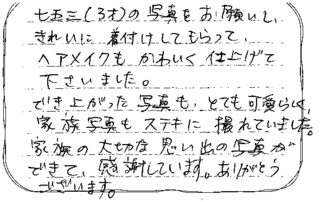 七五三(3才)の写真をお願いし、
きれいに着付けしてもらって、
ヘアメイクもかわいく仕上げて
下さいました。
でき上がった写真も、とても可愛らしく、
家族写真もステキに撮れていました。
家族の大切な思い出の写真が
できて、感謝しています。ありがとう
ございます。